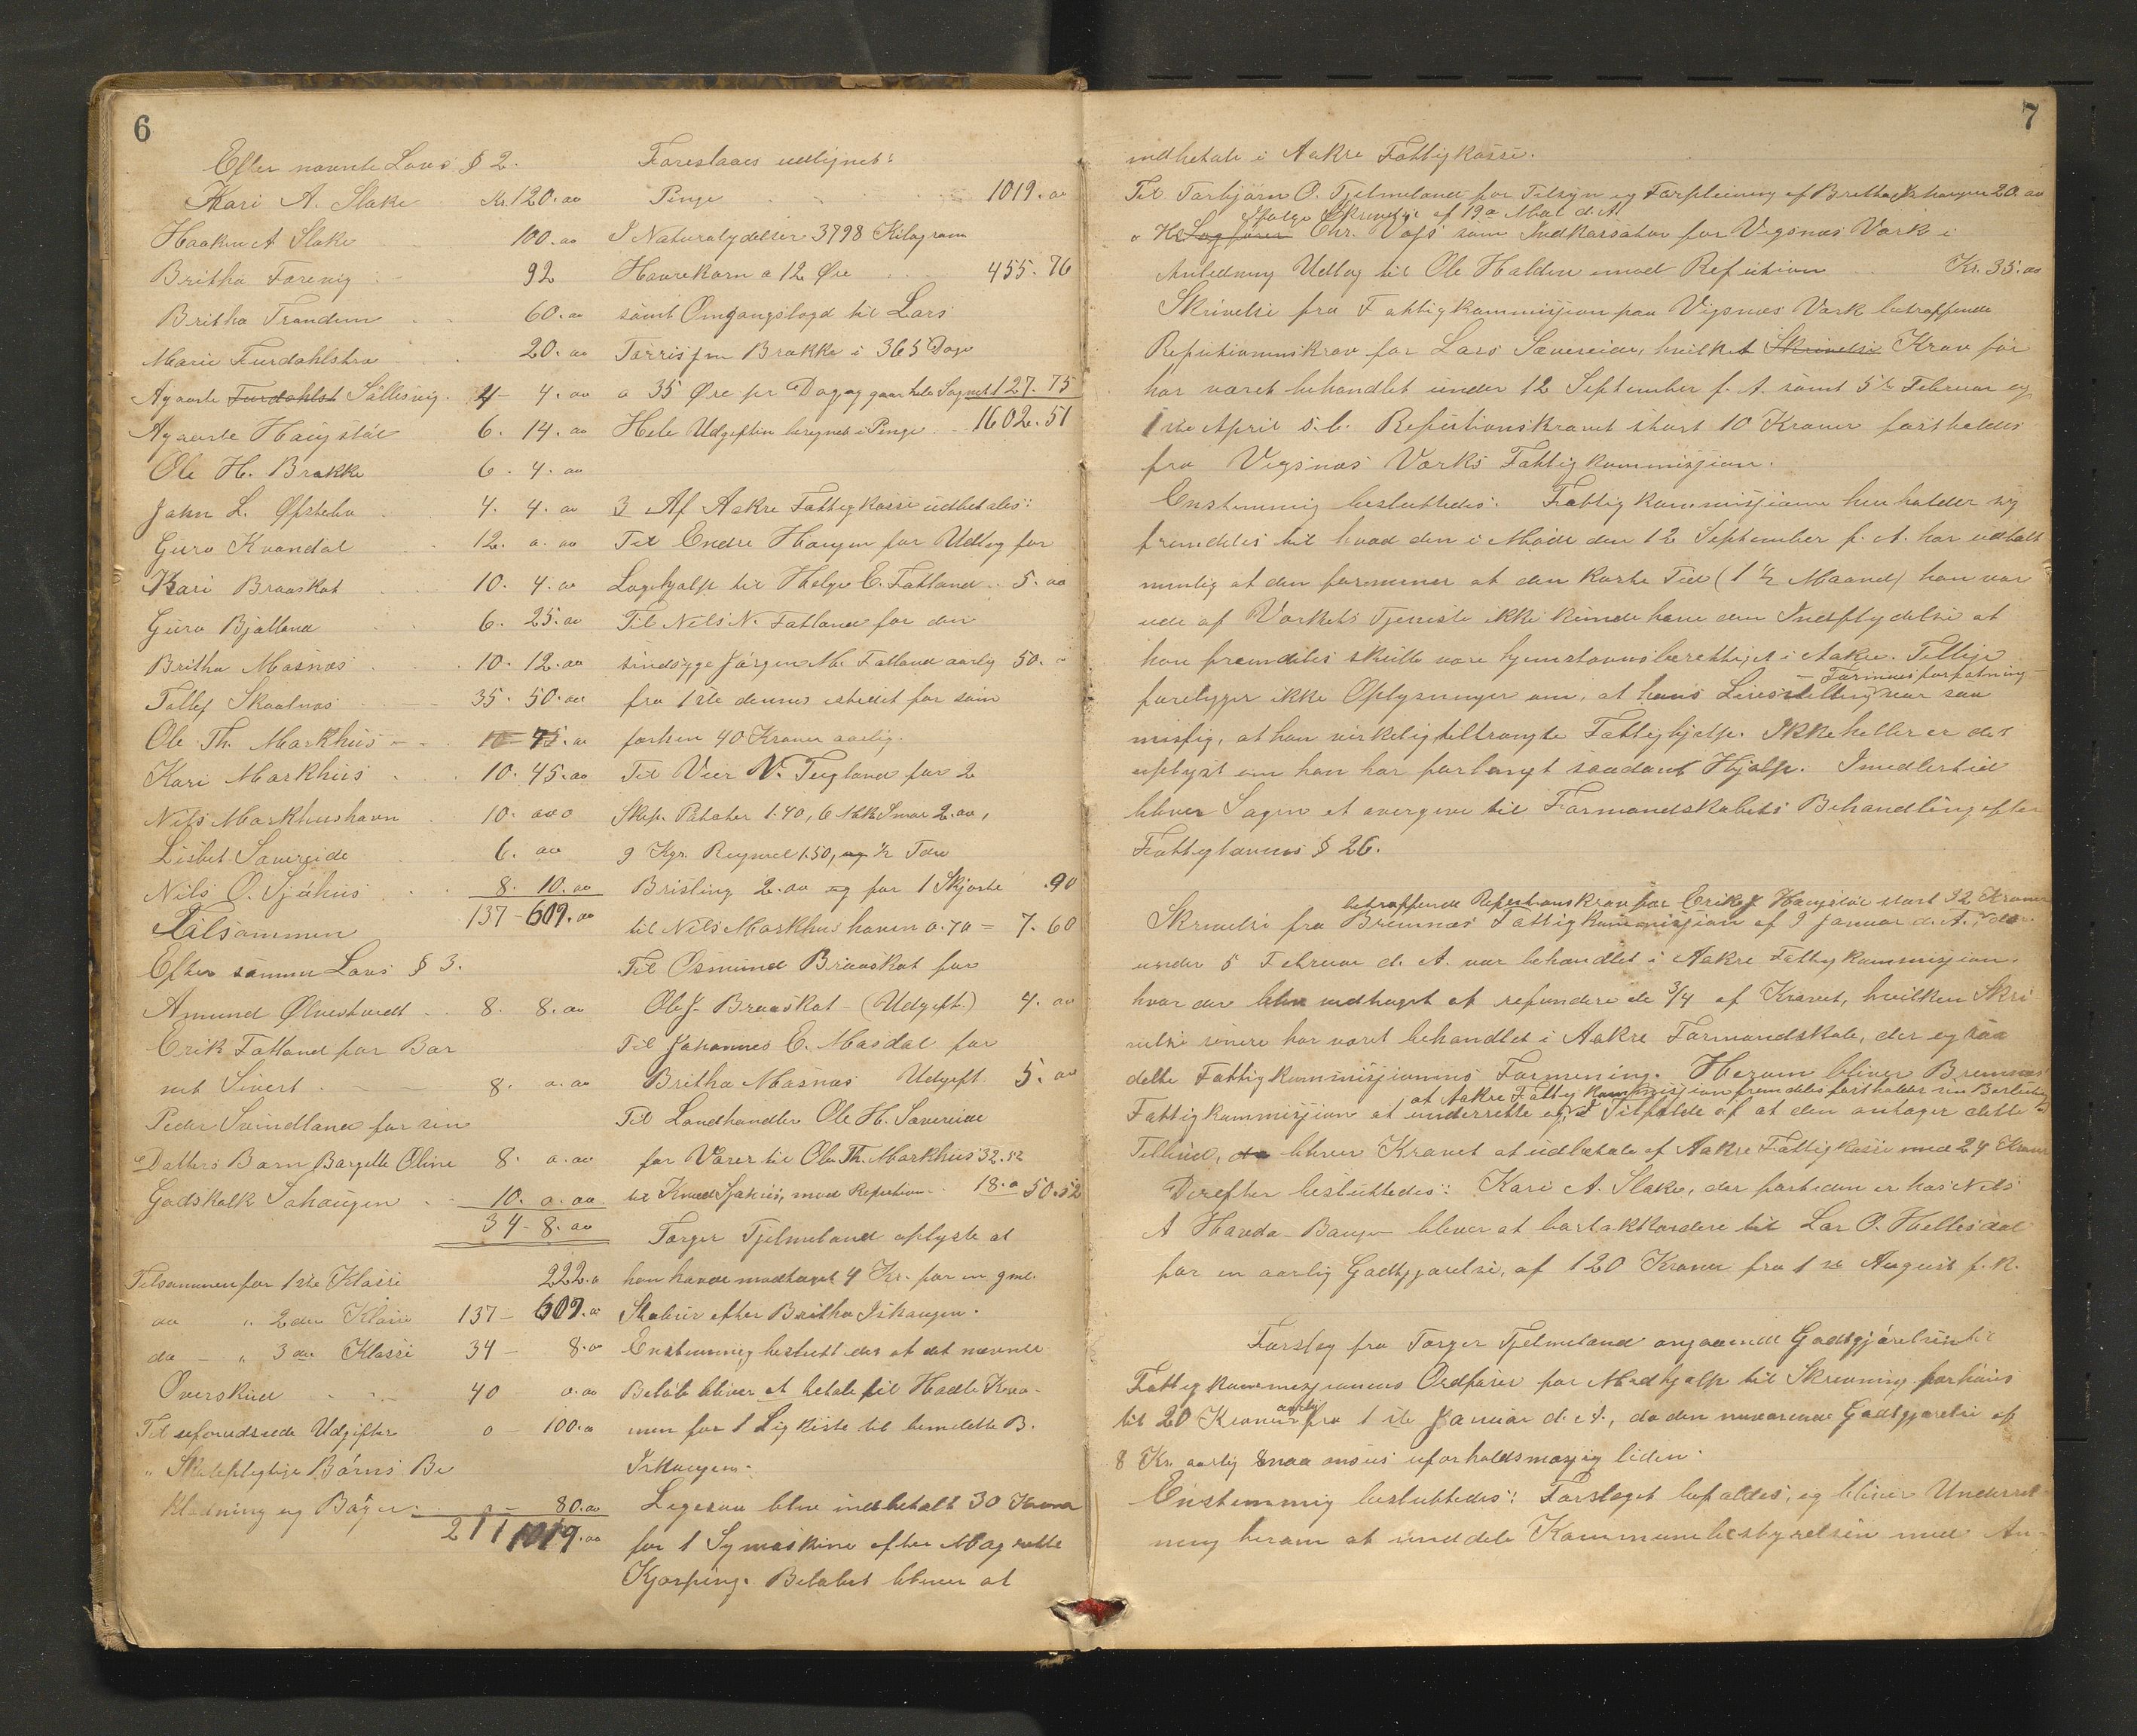 6
Efter nævnte Lovs § 2.
Kari A. Slake Kr. 120.00
Haaken A Slake 100.00
Britha Toreneg 92
Britha Trondem 60.00
Marie Furdahlstra 20.00
Agaate Furdahlst Sältesvig. 4 - 4.00
Agaate Haugstöl 6. 14.00
Ole H. Brække 6. 4.00
John L. Østebø 4. 4.00
Guro Kvandal 12. 0.00
Kari Braaskat 10. 4.00
Guro Bjelland 6. 25.00
Britha Masnæs 10. 12.00
Tollef Skaalnæs 35. 50.00
Ole Th. Markhus 10 - 45.00
Kari Markhus 10. 45.00
Nils Markhushavn 10. 000
Lisbet Sævereide 6. 00
Nils O. Sjöhus 8. 10.00
Tilsammen 137 - 609.00
Efter samme Lovs § 3.
Amund Ølvestvedt 8. 8.00
Erik Fatland for Bar
net Sivert 8. 0.00
Peder Svindland for sin
Datters Barn Bargille Oline 8. 0.00
Godskalk Sohaugen 10. 0.00
34 - 8.00
Tilsammen for 1ste Klasse 222.0
do " 2den Klasse 137 - 609.0
do - " 3die Klasse 34 - 8.00
Overskud 40 0.00
Til uforudseede Udgifter 0 - 100.0
" Skolepligtige Börns Be
klædning og Böger 0 - 80.00
211 1019.00
Foreslaaes udlignet:
Penge 1019.00
I Naturalydelser 3798 Kilogram
Havrekorn a 12 Øre 455.76
samt Omgangslægd til Lars
Torrisfm Brække i 365 Dage
a 35 Øre pr Dag og gaar hele Sognet 127.75
Hele Udgiften beregnet i Penge 1602.51
3 Af Aakre Fattigkasse udbetales:
Til Endre Haugen for Udlæg for
Lægehjælp til Helge E. Fatland 5.00
Til Nils N. Fatland for den
sindsyge Jörgen M. Fatland aarlig 50. -
fra 1ste dennes istedet for som
forhen 40 Kroner aarlig.
Til Vier N. Teigland for 2
Skp. Poteter 1.40, 6 Mk Smør 2.00,
9 Kgr. Rugmel 1.50, og ½ Tøn
Brisling 2.00 og for 1 Skjorte .90
til Nils Markhushaven 0.70 = 7.60
Til Osmund Braaskat for
Ole J. Braaskat - (Udgift) 4.00
Til Johannes E. Masdal for
Britha Masnæs Udgift 5.00
Til Landhandler Ole H. Sævereide
for Varer til Ole Th. Markhus 32.52
til Knud Sjøhus, mod Refusion 18.0 50.52
Torger Tjelmeland oplyste at
han havde modtaget 4 Kr. for en gml.
Stabur efter Britha Ishaugen.
Enstemmig besluttedes at det nævnte
Beløb bliver at betale til Hadle Kvan-
men for 1 Ligkiste til bemeldte B.
Ishaugen.
Ligesaa blev indbetalt 30 Kroner
for 1 Symaskine efter Magrethe
Kjærping. Beløbet bliver at
7
indbetale i Aakre Fattigkasse.
Til Torbjörn O. Tjelmeland for Tilsyn og Forpleining af Britha Ishaugen 20.00
ifölge Skrivelse af 19de Mai d.A.
" Hr Sagförer Chr. Vofs som Indkassator for Vigsnæs Værk i
Anledning Udlæg til Ole Halden imod Refusion Kr. 35.00
Skrivelse fra Fattigkommissjon paa Vigsnæs Værk betræffende
Refusionskrav for Lars Sævereide, hvilket Skrivelse Krav för
har været behandlet under 12 September f. A. samt 5te Februar og
1ste April d.A. Refusionskravet stort 10 Kroner fastholdes
fra Vigsnæs Værks Fattigkommissjon.
Enstemmig besluttedes: Fattigkommissjonen henholder sig
fremdeles til hvad den i Möde den 12 September f. A. har udtalt
nemlig at den formener at den korte Tid (1½ Maaned) han var
ude af Værkets Tjeneste ikke kunde have den Indflydelse at
han fremdeles skulle være hjemstavnsberettiget i Aakre. Tillige
- Formuesforfatning -
forelyger ikke Oplysninger om, at hans Livsstilling var saa
misfig, at han virkelig tiltrængte Fattighjælp. Ikke heller er det
oplyst om han har forlangt saadant Hjælp. Imidlertid
bliver Sagen at overgive til Formandskabets Behandling efter
Fattiglovens § 26.
betræffende Refusionskrav for Erik J Haugstöl stort 32 Kroner
Skrivelse fra Bremnæs Fattigkommissjon af 9 Januar d.A.
under 5 Februar d. A. var behandlet i Aakre Fattigkommissjon.
hvor der blev vedtaget at refundere de 3/4 af Kravet, hvilken Skri
velse senere har været behandlet i Aakre Formandskab, der og saa
delte Fattigkommissjonens Formening. Herom bliver Bremnæs
at Aakre Fattigkommissjon fremdeles fastholder sin Beslutning
Fattigkommissjon at underrette og i Tilfælde af at den antager dette
Tilbud, da bliver Kravet at udbetale af Aakre Fattigkasse med 24 Kroner
Derefter besluttedes: Kari A. Slake, der fortiden er hos Nels
A Havda-Baugen bliver at bortakkordere til Lar O. Hellesdal
for en aarlig Godtgjørelse, af 120 Kroner fra 1ste August f. K.
Forslag fra Torger Tjelmeland angaaende Godtgjørelsen til
Fattigkommissjonens Ordfører for Medhjælp til Skrivning forhöies
aarlig
til 20 Kroner fra 1ste Januar d.A., da den nuværende Godtgjørelse af
8 Kr. aarlig maa ansees uforholdsmæssig liden.
Enstemmig besluttedes: Forslaget bifaldes, og bliver Underret
ning herom at meddele Kommunebestyrelsen med An-